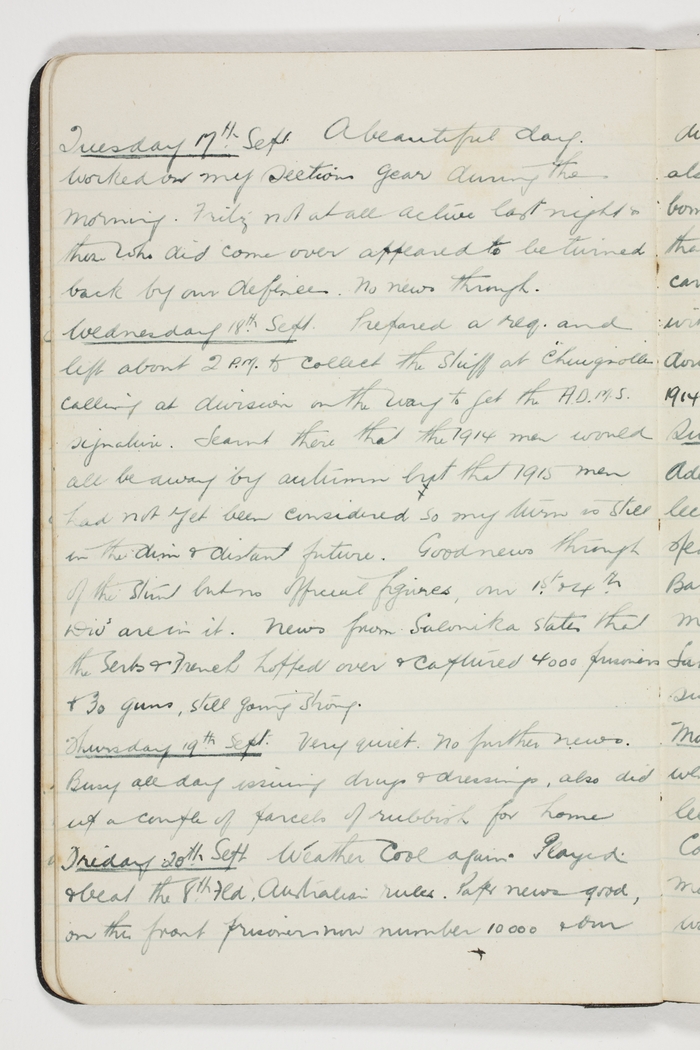 Tuesday 17th Sept. A beautiful day.
Worked on my sections gear during the
morning. Fritz not at all active last night &
those who did come over appeared to be turned
back by our defences. No news through.
Wednesday 18th Sept. Prepared a req. and
left about 2 P.M. to collect the stuff at
calling at division on the way to get the A.D.M.S.
signature. Learnt there that the 1914 men would
all be away by autumn but that 1915 men
had not yet been considered so my turn is still
in the dim & distant future. Good news through
of the Stunt but no official figures, our 1st & 4th
Divs are in it. News from Salonika states that
the Serbs & French hopped over & captured 4000 prisoners
& 30 guns, still going strong.
Thursday 19th Sept. Very quiet. No further news.
Busy all day issuing drugs & dressings, also did
up a couple of parcels of rubbish for home
Friday 20th Sept Weather Cool again. Played
& beat the 8th Fld, Australian rules. Paper news good,
on this front prisoners now number 10000 & our
du
als
bom
tha
car
wi
dow
1914
Su
Ade
lee
Ba
m
su
Mo
wh
lee
Co
me